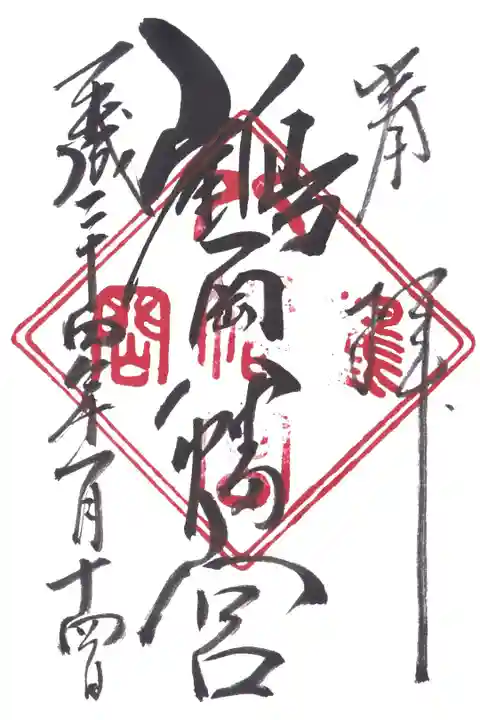 奉拝
龜岡八幡宮
平成二十四年一月十四日